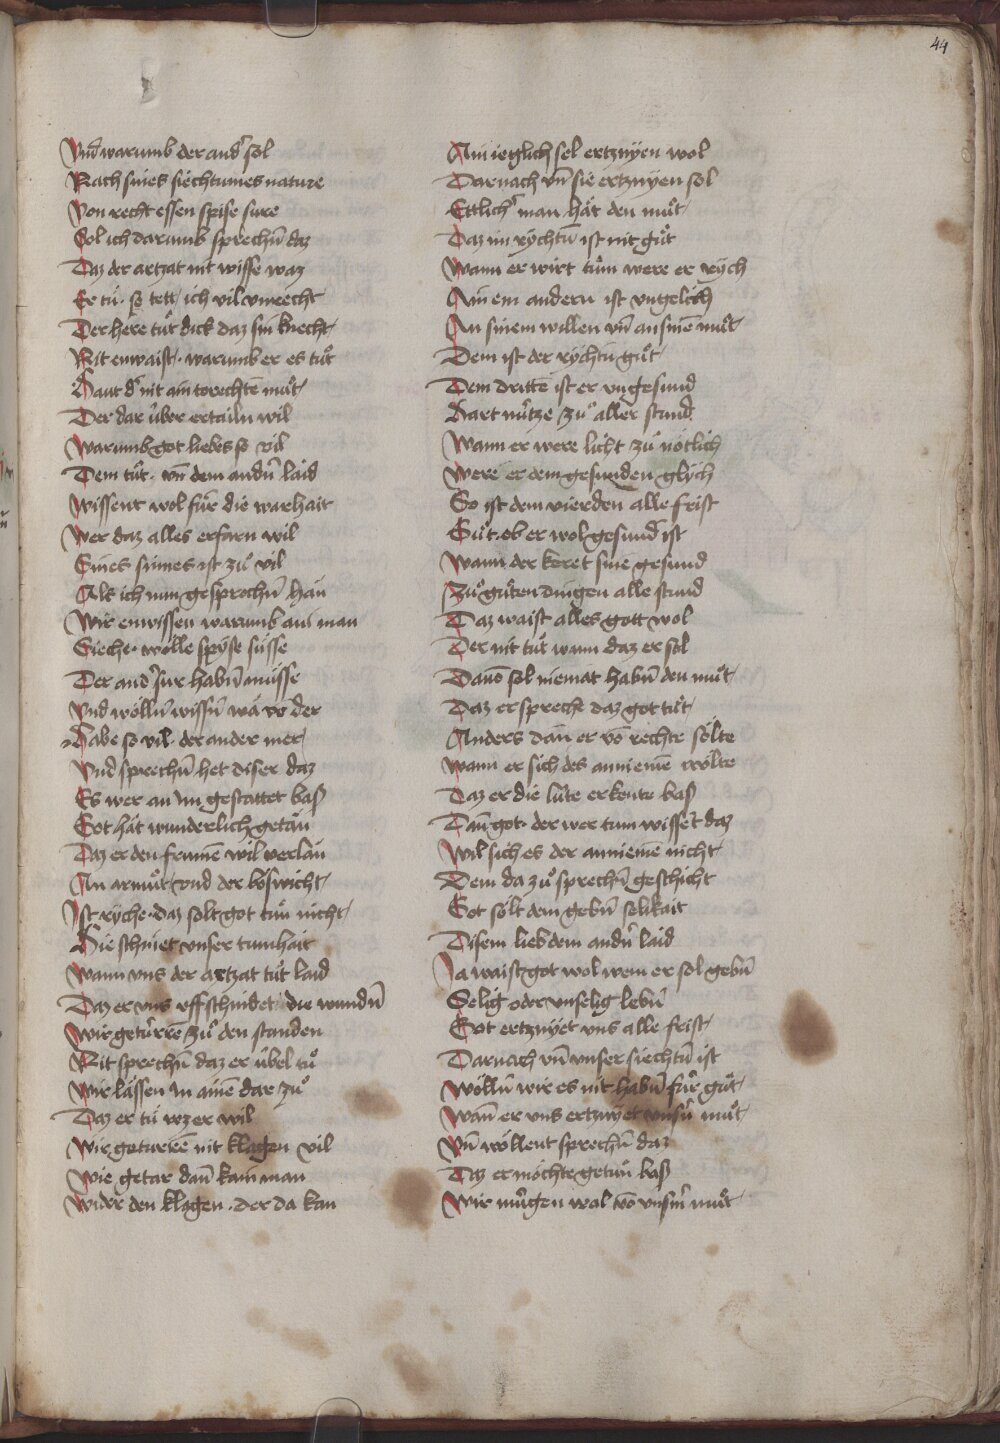 44
Vnd warumb der andˢ sol
Nach sines siechtumes nature
Von recht essen spise sure
Sol ich darumb sprechn̄ daz
Daz der artzat nit wisse waz
Er tü · so tett ich vil vnrecht
Der here tuͦt dick daz sin knecht
Nit enwaist · warumb er es tuͦt
Haut dˢ nit ain torechtē muͦt
Der dar v̂ber ertailn wil
Warumb got liebes so vil
Dem tuͦt · vn̄ dem andn̄ laid
Wissent wol für die warhait
Wer daz alles erfarn wil
Sines sinnes ist zuͦ vil
Als ich nun gesprochn̄ han
Wir enwissen warumb ain man
Sieche · wölle spyse süsse
Der andˢ sur habn̄ müsse
Vnd wölln̄ wissn̄ wa vō der
Habe so vil · der ander mer
Vnd sprechn̄ het diser daz
Es wer an im gestattet baß
Got hät wunderlich getän
Daz er den frumē wil verlän
In armuͦt vnd der böswicht
Ist ryche · daz solt got tuͦn nicht
Hie schinet vnser tumhait
Wann vns der artzat tuͦt laid
Daz er vns vff schnidet die wundn̄
Wir getürrē zuͦ den stunden
Nit sprechn̄ daz er übel tuͦ
Wir lässen in aine dar zuͦ
Daz er tü wz er wil
Wir geturrē nit klagen vil
Wie getar dan̄ kain man
Wider den klagen · der da kan
Ain ieglich sel ertznyen wol
Darnach vn̄ sie ertznyen sol
Ettlichˢ man hät den muͦt
Daz im rychtū ist nit guͦt
Wann er wirt tuͦm were er rych
Ain em andern ist vngelich
An sinem willen vn̄ an sinē muͦt
Dem ist der rychtū guͦt
Dem drittē ist er vngesund
Hart nütze zuͦ aller stund
Wann er were licht zuͦ nötlich
Were er dem gesunden glych
So ist dem vierden alle frist
Guͦt · ob er wol gesund ist
Wann der keret sine gesund
Zuͦ guͦten dingen alle stund
Daz waist alles gott wol
Der nit tuͦt wann daz er sol
Dauō sol niemat habn̄ den muͦt
Daz er spreche daz got tuͦt
Anders dan̄ er vō rechte sölte
Wann er sich des annemē wölte
Daz er die lüte erkente baß
Dan̄ got · der wer tum wissēt daz
Wil sich es der annemē nicht
Dem da zuͦ sprechn̄ geschicht
Got sölt dem gebn̄ selikait
Disem lieb dem andn̄ laid
Ja waist got wol wem er sol gebn̄
Selig oder vnselig lebn̄
Got ertznyet vns alle frist
Darnach vn̄ vnser siechtū ist
Wölln̄ wir es nit habn̄ für guͦt
Wan̄ er vns ertznyet vnsn̄ muͦt
Vn̄ wöllent sprechn̄ daz
Daz er möchte getuͦn baß
Wir mügen wol vō vnsˢm muͦt